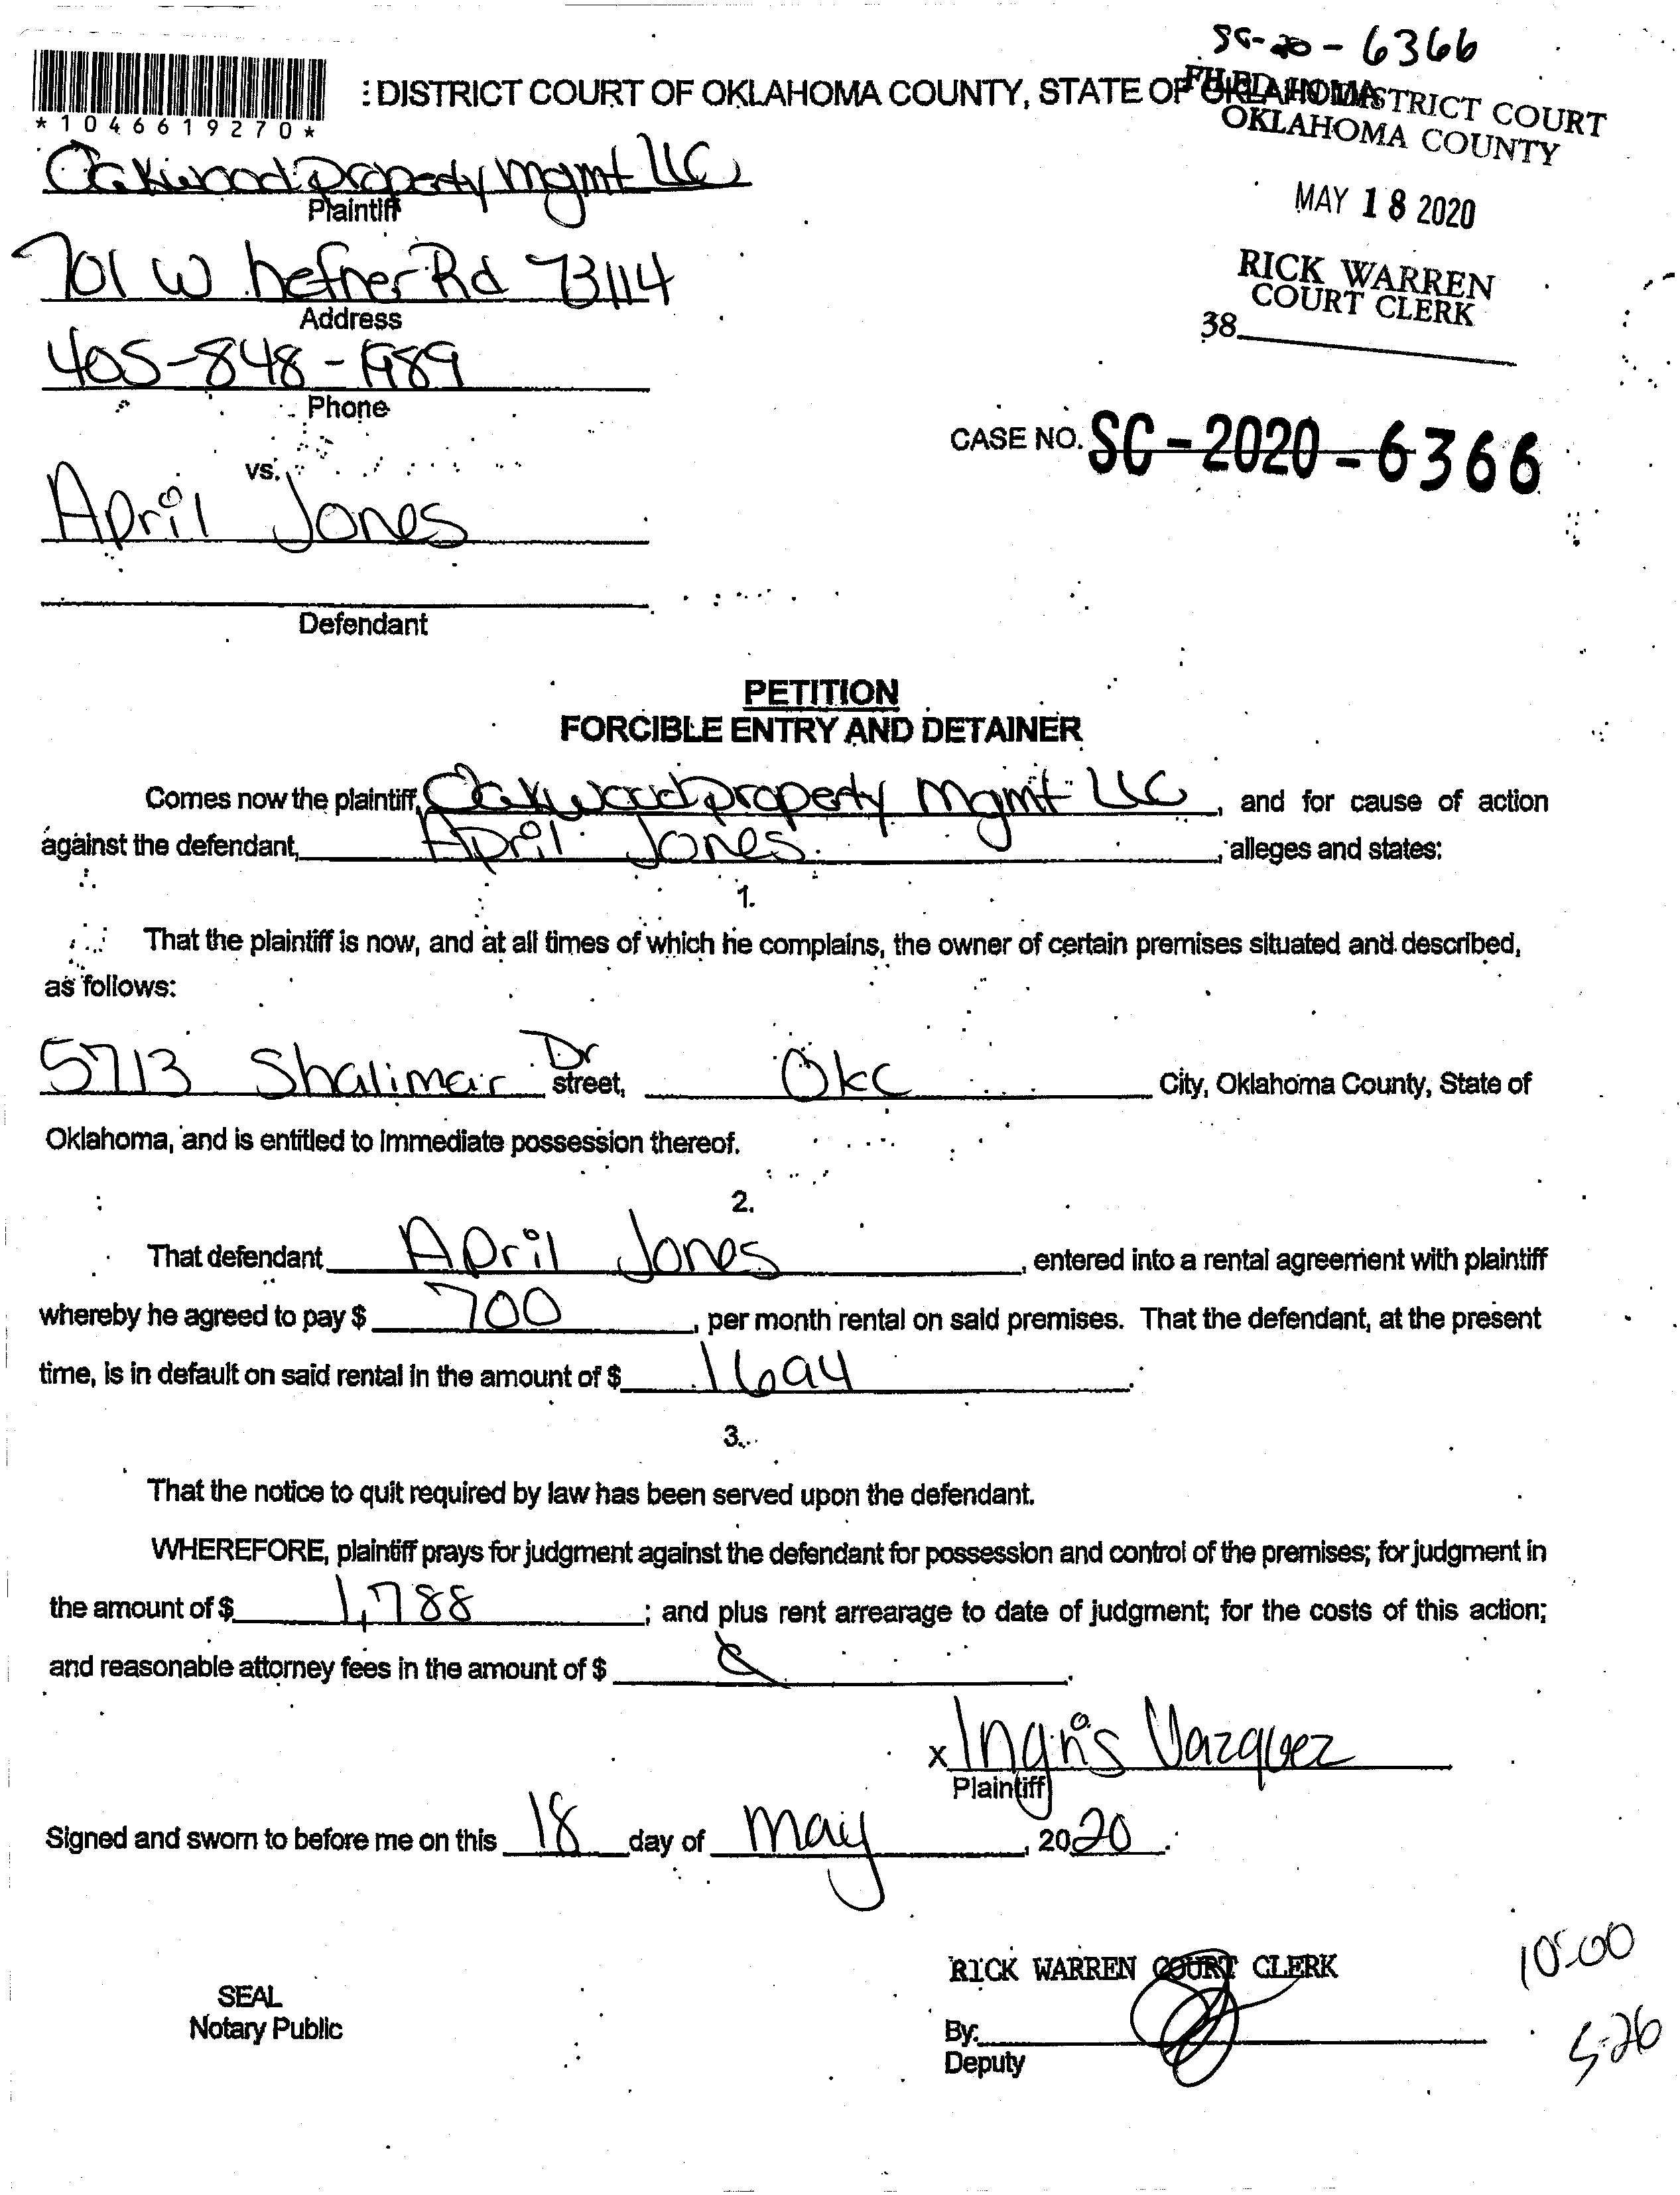 SC-20-6366
: DISTRICT COURT OF OKLAHOMA COUNTY, STATE OF OKLAHOMA
FILED IN DISTRICT COURT
OKLAHOMA COUNTY
*1046619270*
Oakwood Property Mgmt LLC
Plaintiff
MAY 18 2020
701 W hefner Rd 73114
Address
RICK WARREN
COURT CLERK
38
405-848-1989
Phone
CASE NO. SC-2020-6366
vs.
April Jones
Defendant
PETITION
FORCIBLE ENTRY AND DETAINER
Comes now the plaintiff, Oakwood property Mgmt LLC, and for cause of action
against the defendant, April Jones, alleges and states:
1.
That the plaintiff is now, and at all times of which he complains, the owner of certain premises situated and described,
as follows:
5713 Shalimar Dr street, Okc City, Oklahoma County, State of
Oklahoma, and is entitled to immediate possession thereof.
2.
That defendant April Jones, entered into a rental agreement with plaintiff
whereby he agreed to pay $ 700, per month rental on said premises. That the defendant, at the present
time, is in default on said rental in the amount of $ 1694.
3.
That the notice to quit required by law has been served upon the defendant.
WHEREFORE, plaintiff prays for judgment against the defendant for possession and control of the premises; for judgment in
the amount of $ 1,788; and plus rent arrearage to date of judgment; for the costs of this action;
and reasonable attorney fees in the amount of $
x Ingris Vazquez
Plaintiff
Signed and sworn to before me on this 18 day of may, 2020.
RICK WARREN COURT CLERK
10:00
SEAL
Notary Public
By:
Deputy
5-26